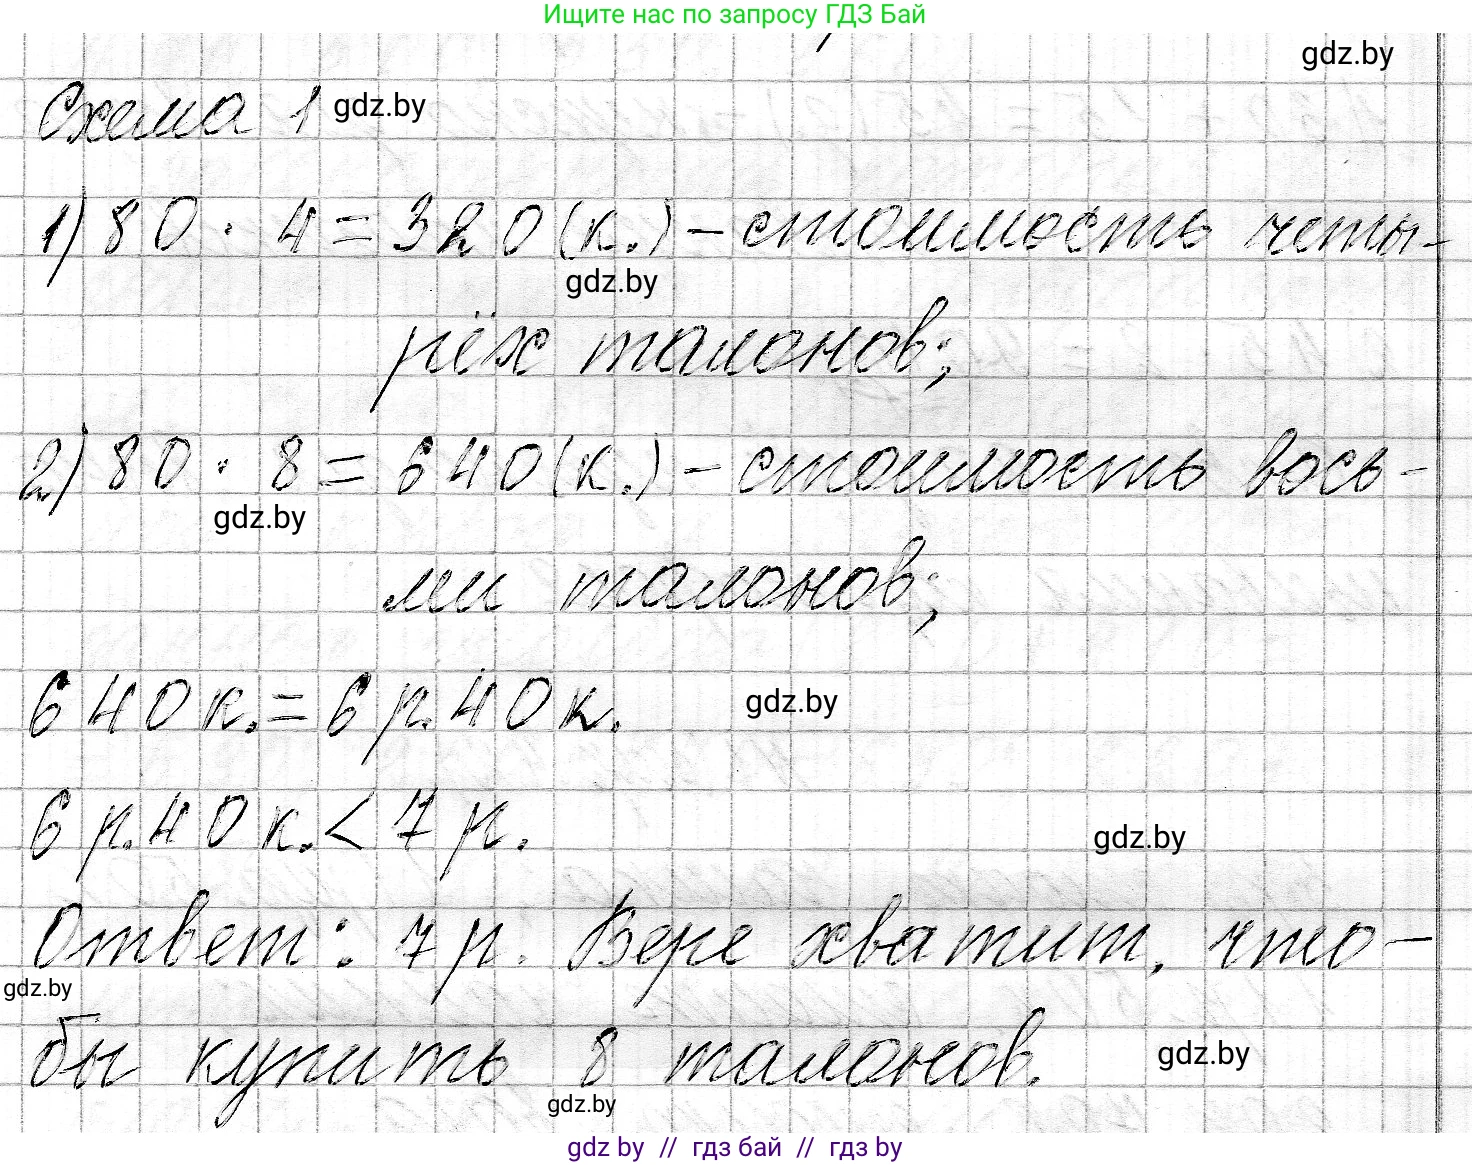 Ищите нас по запросу ГДЗ Бай
gdz.by
Схема 1 gdz.by
1) 80 · 4 = 320 (к.) – стоимость четы-
gdz.by
рёх талонов;
2) 80 · 8 = 640 (к.) – стоимость вось-
gdz.by
ми талонов;
640 к. = 6 р. 40 к. gdz.by
6 р. 40 к. < 7 р. gdz.by
Ответ: 7 р. Вере хватит, что-
gdz.by
бы купить 8 талонов. gdz.by
gdz.by
gdz by // гдз бай // гдз by